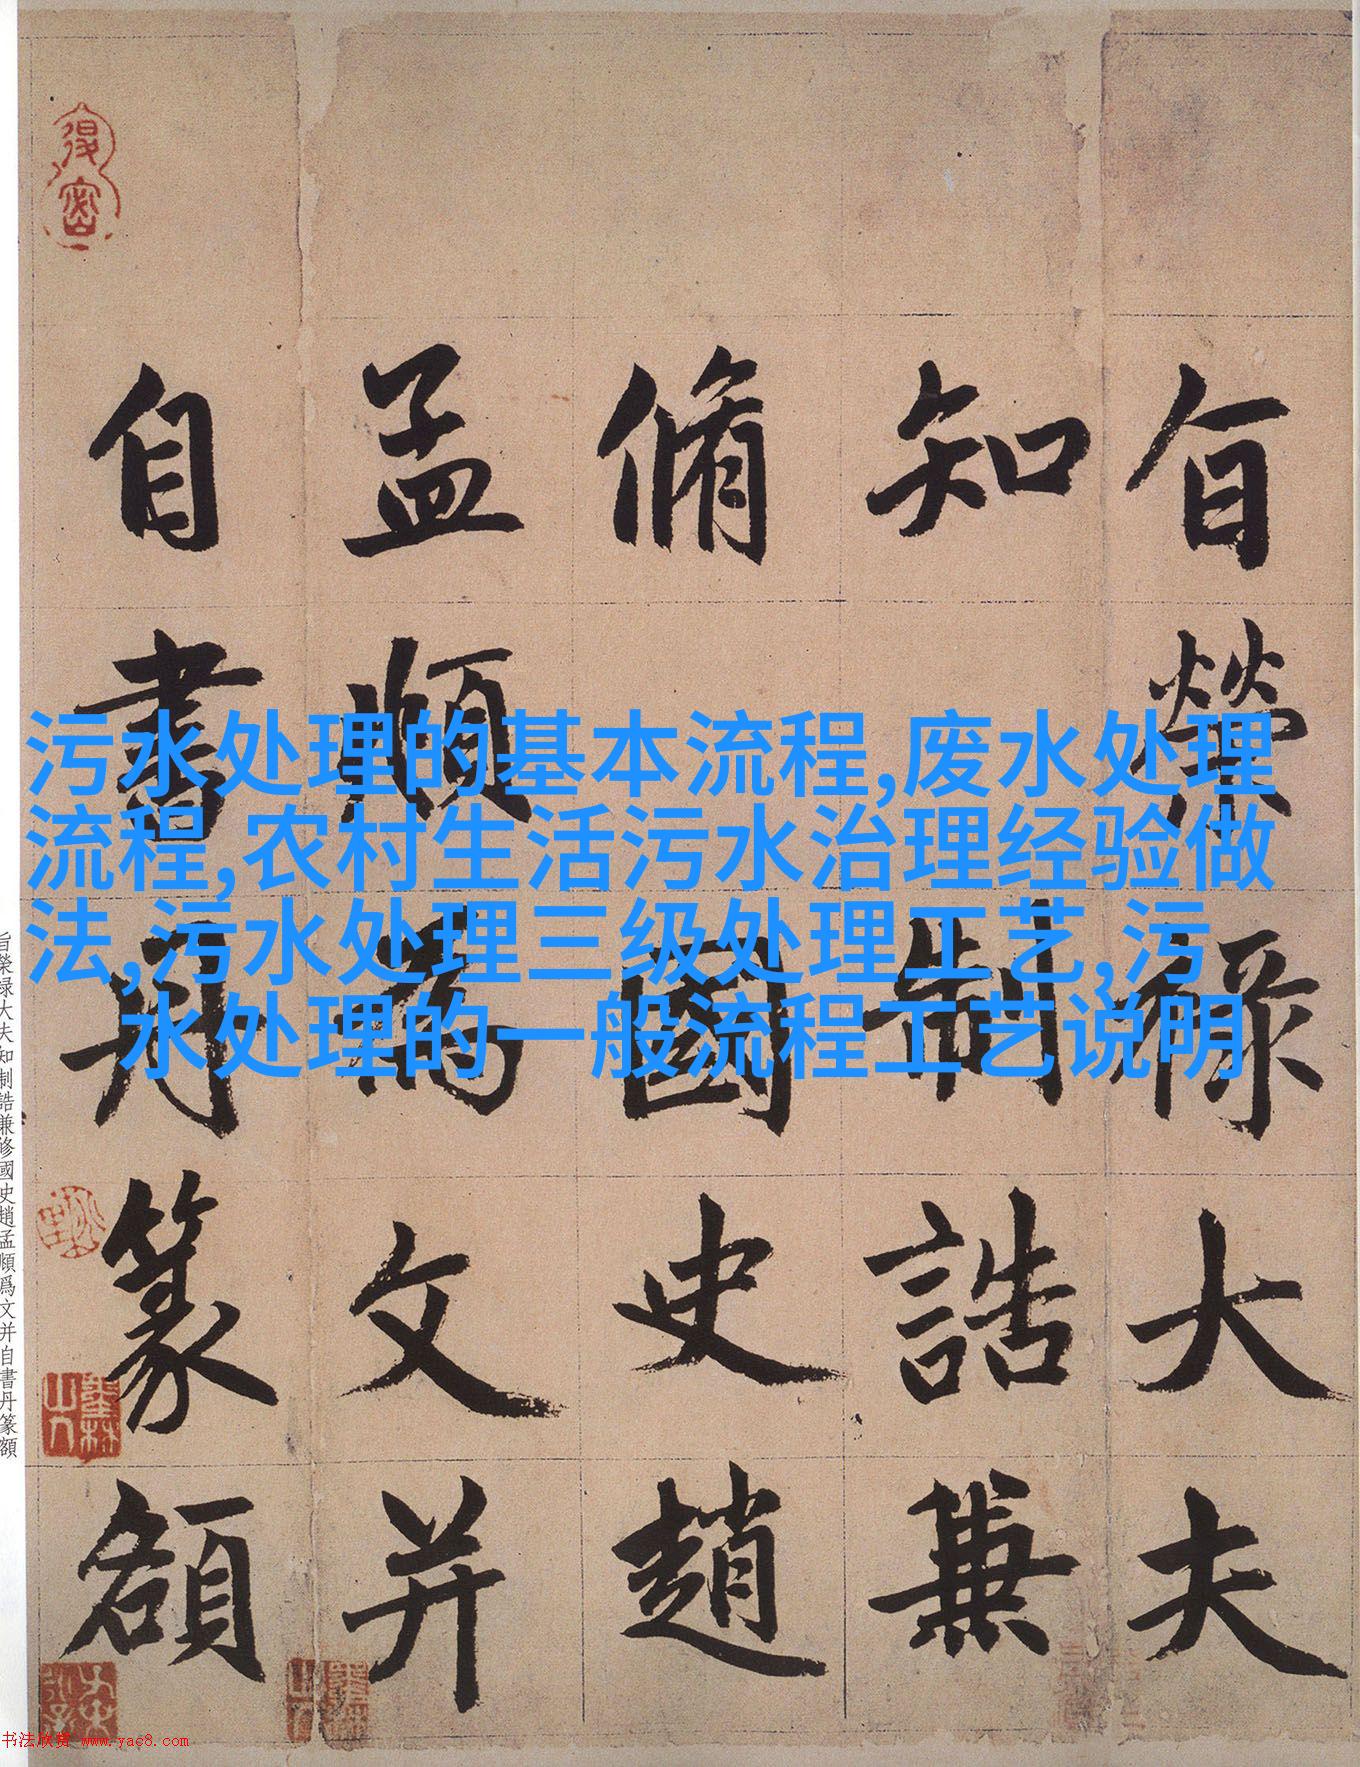 旨榮祿大夫
知制誥兼
脩國史趙
孟頫為文并
自書丹篆額
污水处理的基本流程,废水处理
流程,农村生活污水治理经验做
法,污水处理三级处理工艺,污
水处理的一般流程工艺说明
旨榮祿大夫知制誥兼修國史趙孟頫爲文并自書丹篆額
书法欣赏 www.yac8.com